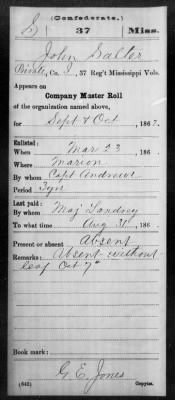 (Confederate.)
S 37 Miss.
John Salter
Private, Co. I, 37 Reg't Mississippi Vols.
Appears on
Company Muster Roll
of the organization named above,
for Sept & Oct, 1862.
Enlisted:
When Mar 23, 186
Where Marion
By whom Capt Andrews
Period 3 yrs
Last paid:
By whom Maj Landrey
To what time Aug 31, 186
Present or absent Absent
Remarks: Absent without
leaf Oct 7"
Book mark:
G. E. Jones
(642) Copyist.